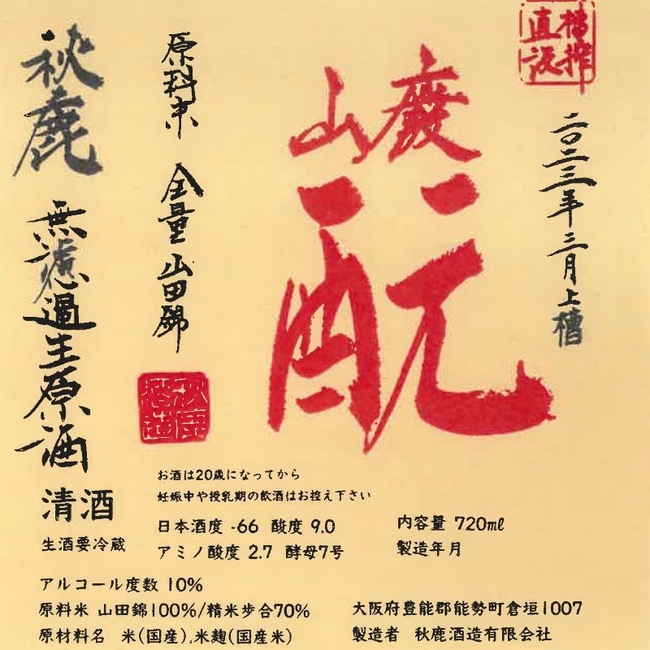 槽搾
直汲
二〇二三年三月上槽
山廢
酛
原料米 全量山田錦
秋鹿 無濾過生原酒
清酒
生酒要冷蔵
お酒は20歳になってから
妊娠中や授乳期の飲酒はお控え下さい
日本酒度 -66 酸度 9.0
アミノ酸度 2.7 酵母7号
内容量 720㎖
製造年月
アルコール度数 10%
原料米 山田錦100%/精米歩合70%
原材料名 米(国産),米麹(国産米)
大阪府豊能郡能勢町倉垣1007
製造者 秋鹿酒造有限会社